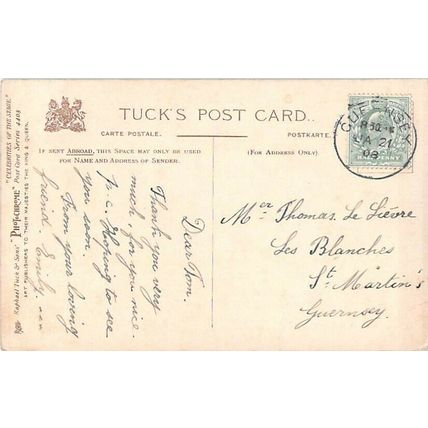 TUCK'S POST CARD.
CARTE POSTALE.
POSTKARTE.
IF SENT ABROAD, THIS SPACE MAY ONLY BE USED
FOR NAME AND ADDRESS OF SENDER.
(FOR ADDRESS ONLY).
RAPHAEL TUCK & SONS' "PHOTOCHROME" Post Card Series 4408
"CELEBRITIES OF THE STAGE."
ART PUBLISHERS TO THEIR MAJESTIES THE KING & QUEEN.
Dear Tom.
Thank you very
much for you nice
p. c. Hoping to see
you soon.
From your loving
friend. Emily.
GUERNSEY
JA 21
HALFPENNY
Mer Thomas. Le Lièvre
Les Blanches
St Martin's
Guernsey.